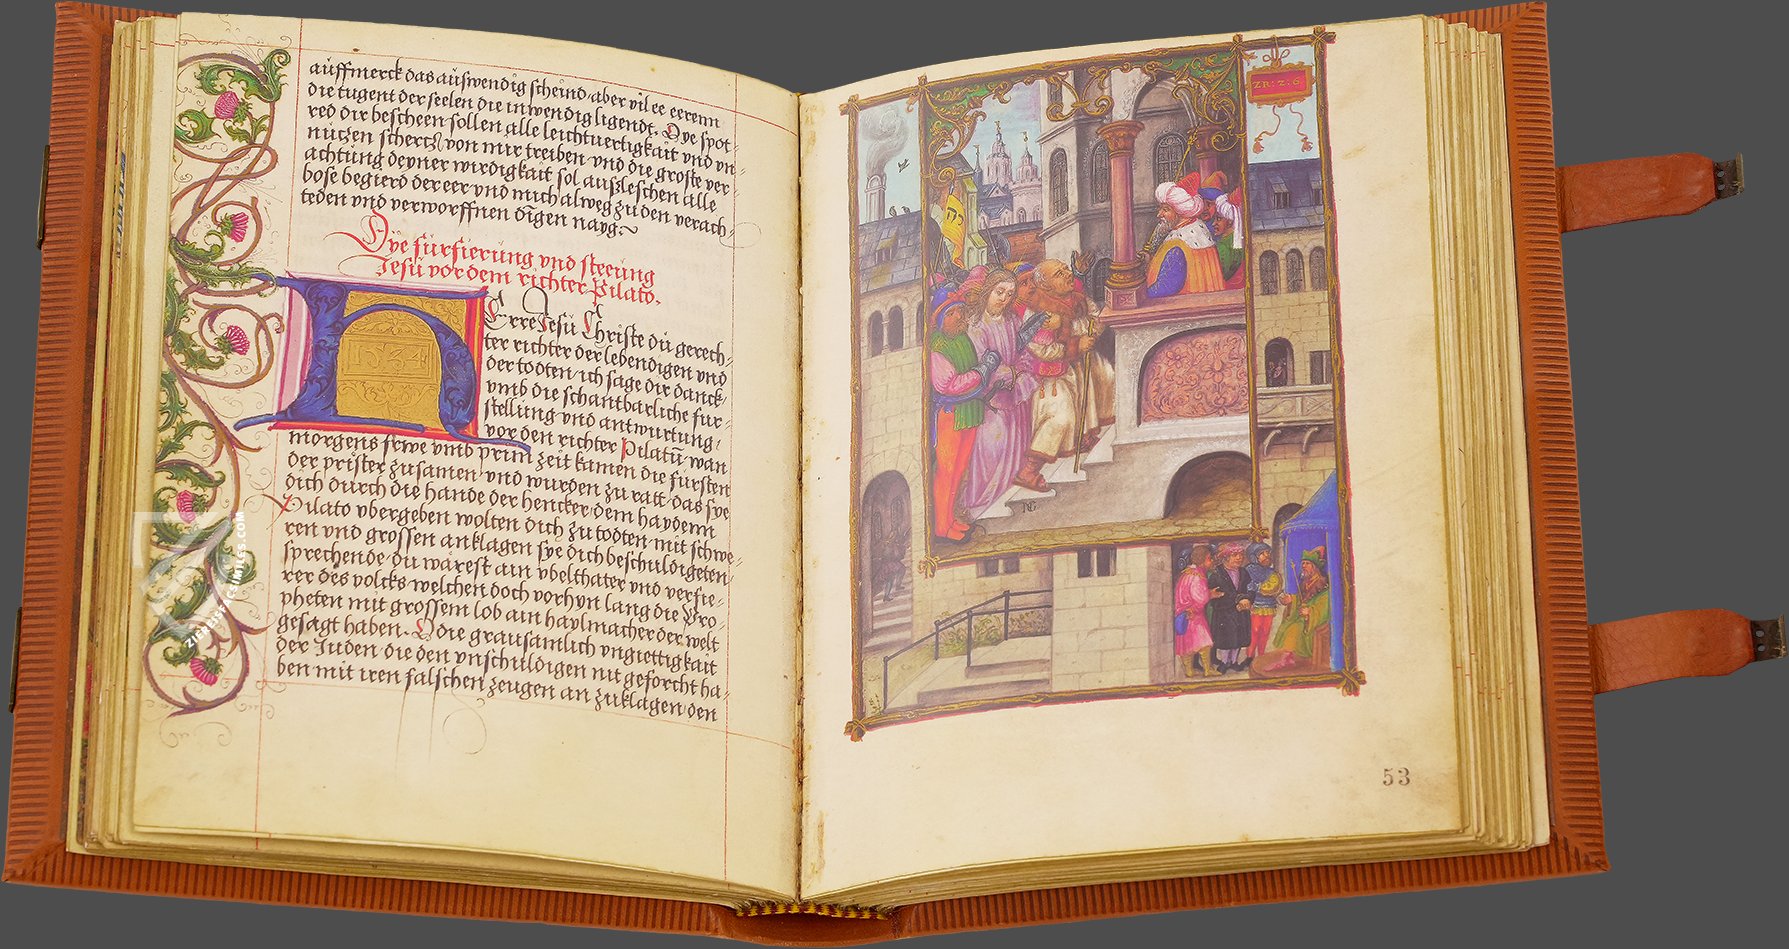 auffmerck das auswendig scheind, aber vil ee eerenn
die tugent der seelen die inwendig ligendt. Dye spot-
red dir bescheen sollen alle leichtuertigkait vnd vn-
nützen schertz/ von mir treiben vnd die groste ver-
achtung deyner wirdigkait sol außleschen alle
bose begierd der eer vnd mich alweg zu den verach-
teden vnd verworffnen dingen nayg.
Dye fürfierung vnd streung
Jesu vor dem richter Pilato.
HErre Jesu Christe du gerech-
ter richter der lebendigen vnd
der todten/ ich sage dir danck/
vmb die schantbarliche fur-
stellung vnd antwurtung/
vor den richter Pilatū wan
morgens frwe vmb prim zeit kamen die fursten
der prister zusamen/ vnd wurden zu ratt/ das sye
dich durch die hande der hencker/ dem haydenn
Pilato vbergeben wolten dich zu todten mit schwe-
ren vnd grossen anklagen sye dich beschuldigeten/
sprechende/ du warest ain vbelthater vnd verfie-
rer des volcks/ welchen doch vorhyn lang die Pro-
pheten mit grossem lob ain haylmacher der welt
gesagt haben. O die grausamlich vngiettigkait
der Juden/ die den vnschuldigen nit geforcht ha-
ben mit iren falschen zeugen an zuklagen/ den
1534
ZR: 2: 6
NG
53
ZIEREISFACSIMILES.COM